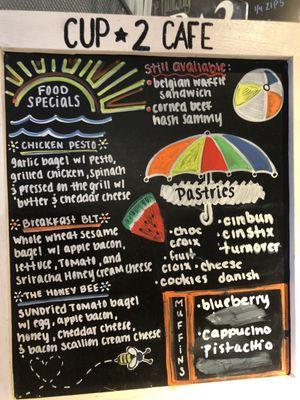 ¼ ZIPS
CUP ★ 2 CAFE
FOOD
SPECIALS
CHICKEN PESTO
garlic bagel w/ pesto,
grilled chicken, spinach
& pressed on the grill w/
butter & cheddar cheese
BREAKFAST BLT
Whole wheat sesame
bagel w/ apple bacon,
lettuce, tomato, and
sriracha honey cream cheese
THE HONEY BEE
SUNDried Tomato bagel
w/ egg, apple bacon,
honey, cheddar cheese,
& bacon scallion cream cheese
still available:
• belgian waffle
sandwich
• corned beef
hash sammy
Pastries
• choc croix
• fruit croix • cheese
• cookies
• cinbun
• cinstix
• turnover
danish
MUFFINS
• blueberry
• cappucino
• Pistachio